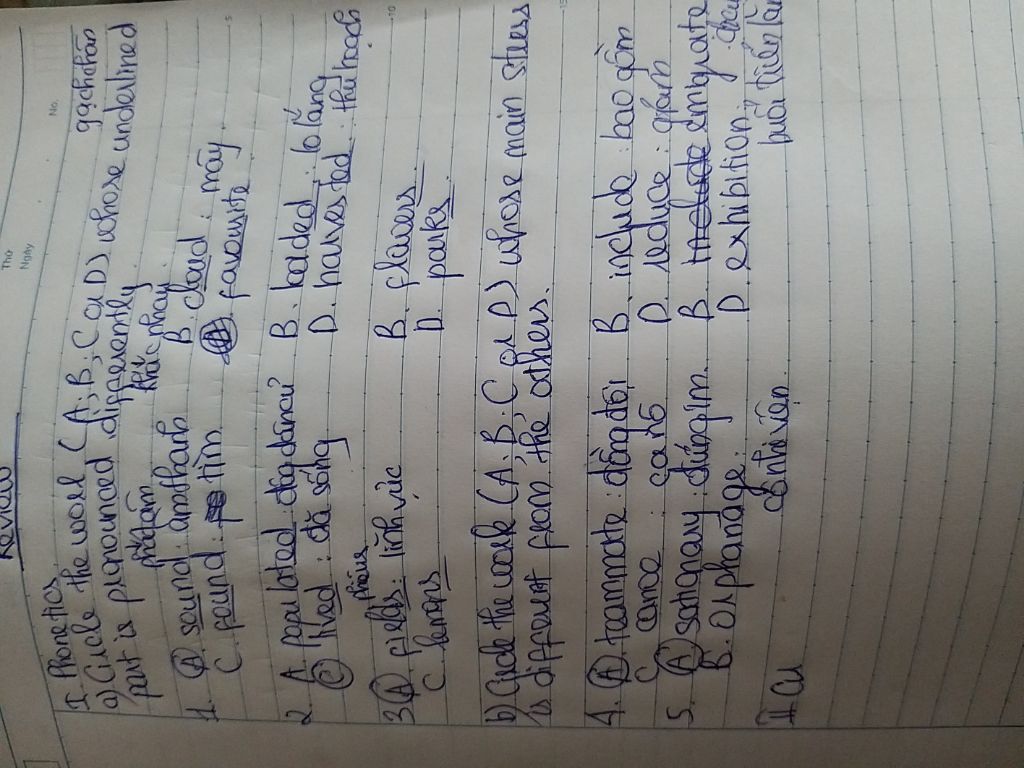 No.
Thứ
Ngày
Review
I. Phonetics
a) Circle the word (A; B; C or D) whose underlined
gạch chân
part is pronounced differently.
phát âm
khác nhau
1. A. sound: âm thanh B. cloud: mây
C. found: tìm D. favourite
2. A. populated: đông dân B. boarded: lo lắng
C. lived: đã sống D. harvested: thu hoạch
3. A. fields: lĩnh vực B. flowers
C. lamps D. parks
b) Circle the work (A, B, C or D) whose main stress
is different from the others.
4. A. teammate: đồng đội B. include: bao gồm
C. canoe: ca nô D. reduce: giảm
5. A. B. include emigrate
B. orphanage: D. exhibition:
II
5
10
15